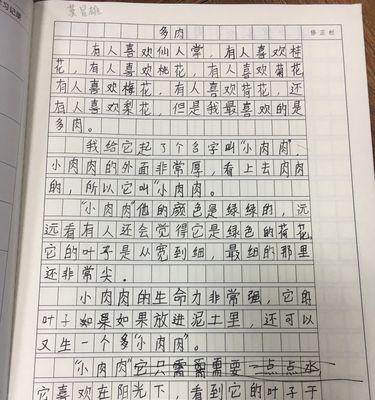 多肉
有人喜欢仙人掌，有人喜欢桂
花，有人喜欢桃花，有人喜欢菊花
有人喜欢梅花，有人喜欢荷花，还
有人喜欢梨花，但是我最喜欢的是
多肉。
我给它起了个名字叫“小肉肉”
小肉肉的外面非常厚，看上去肉肉
的，所以它叫“小肉肉。
“小肉肉”他的颜色是绿绿的，远
远看有人还会觉得它是绿色的荷花，
它的叶子是从宽到细，最细的那里
还非常尖．
小肉肉的生命力非常强，它的
叶子如果如果放进泥土里，还可以
又生一个多“小肉肉”．
“小肉肉”它只需需需要一点点水
它喜欢在阳光下，看到它的叶子于
修正栏